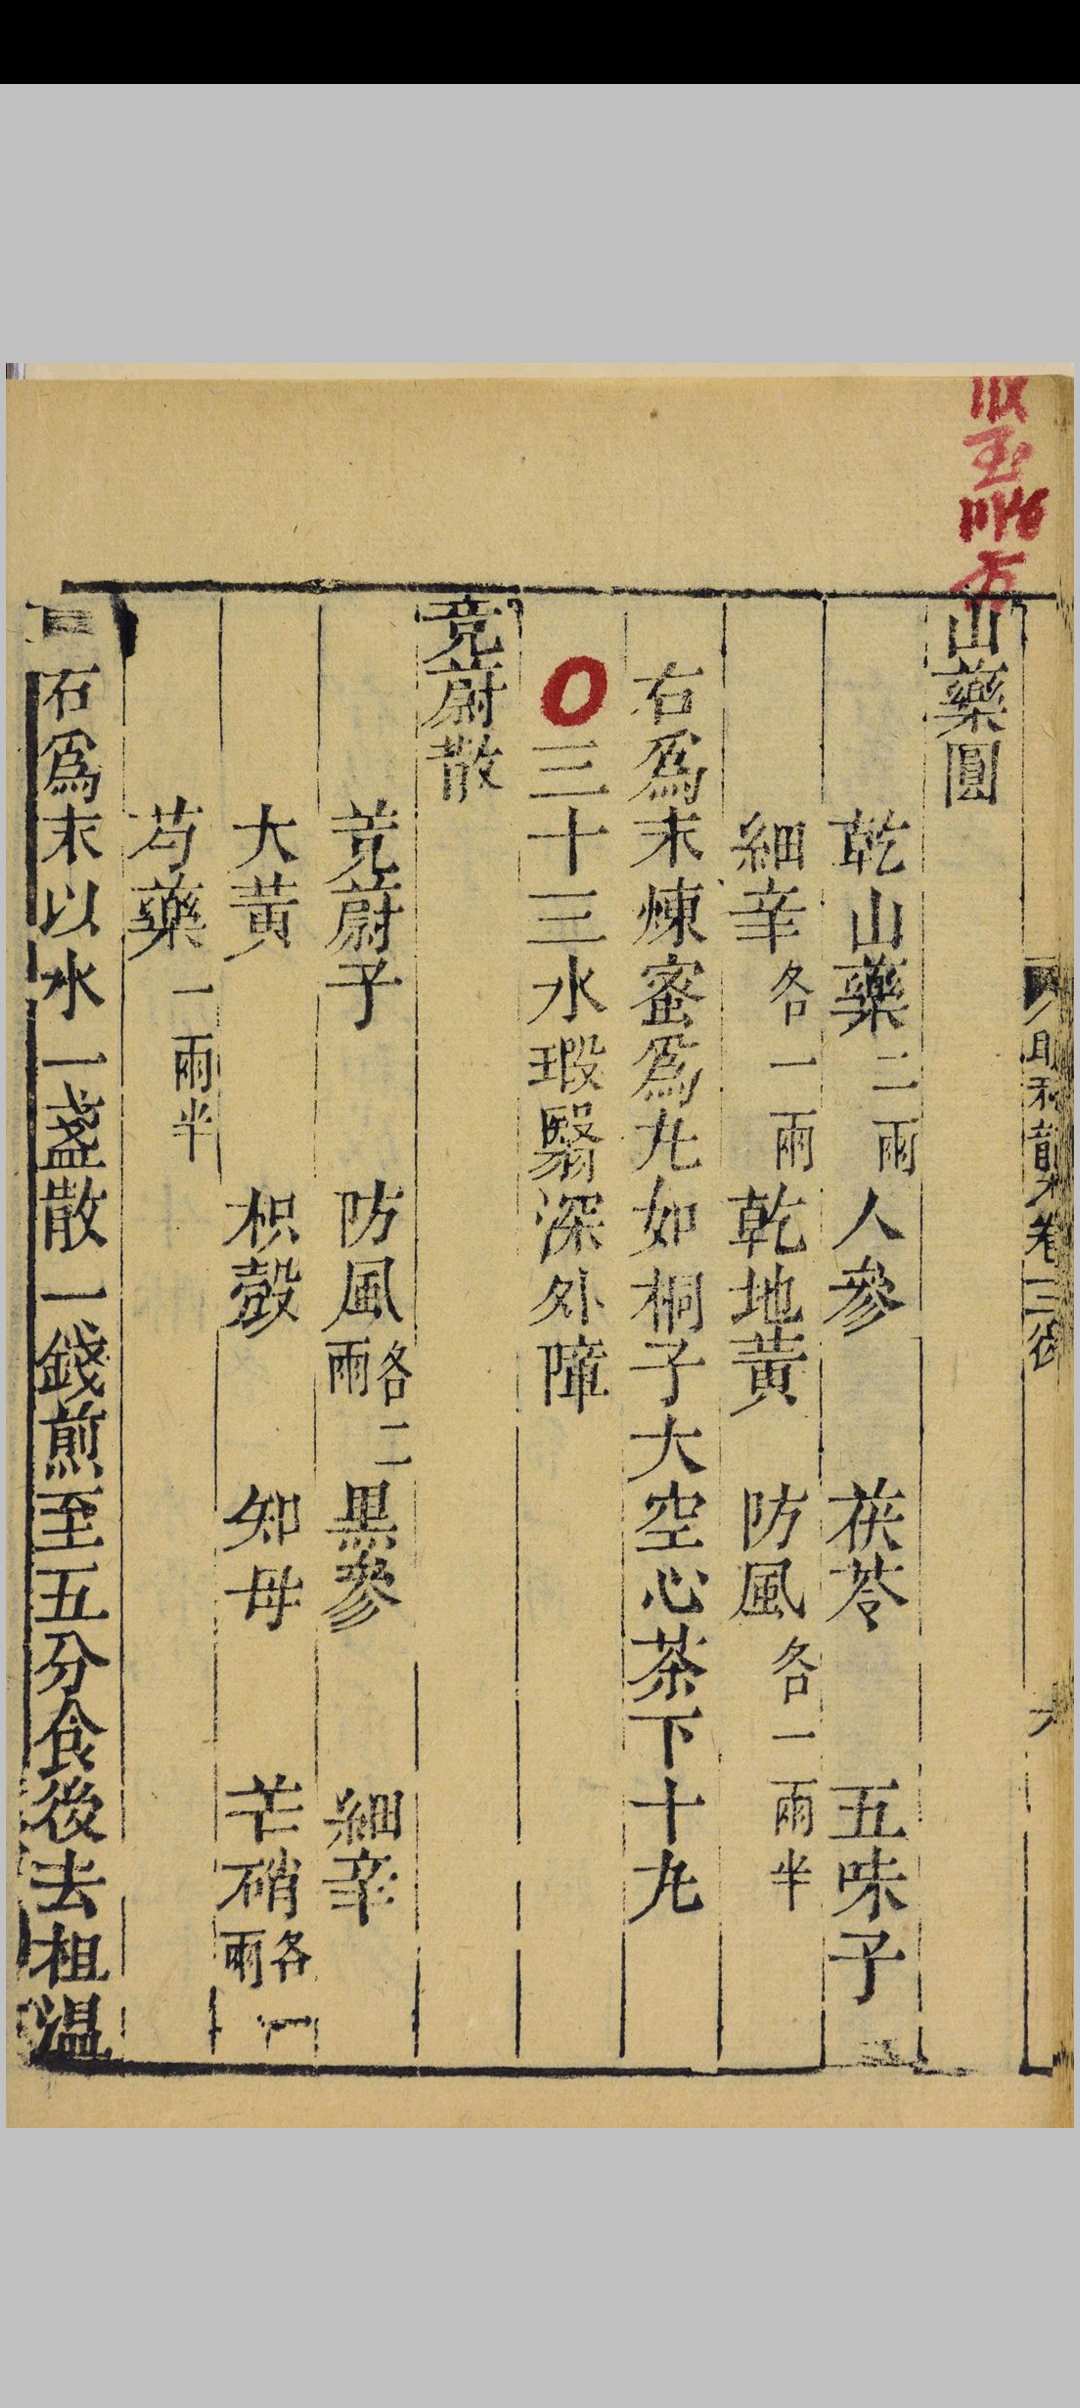 山藥圓
乾山藥二兩 人參 茯苓 五味子
細辛各一兩 乾地黃 防風各一兩半
右爲末煉蜜爲丸如桐子大空心茶下十丸
三十三水瑕翳深外障
茺蔚散
茺蔚子 防風各二兩 黑參 細辛
大黃 枳殼 知母 芒硝各一兩
芍藥一兩半
右爲末以水一盞散一錢煎至五分食後去柤溫